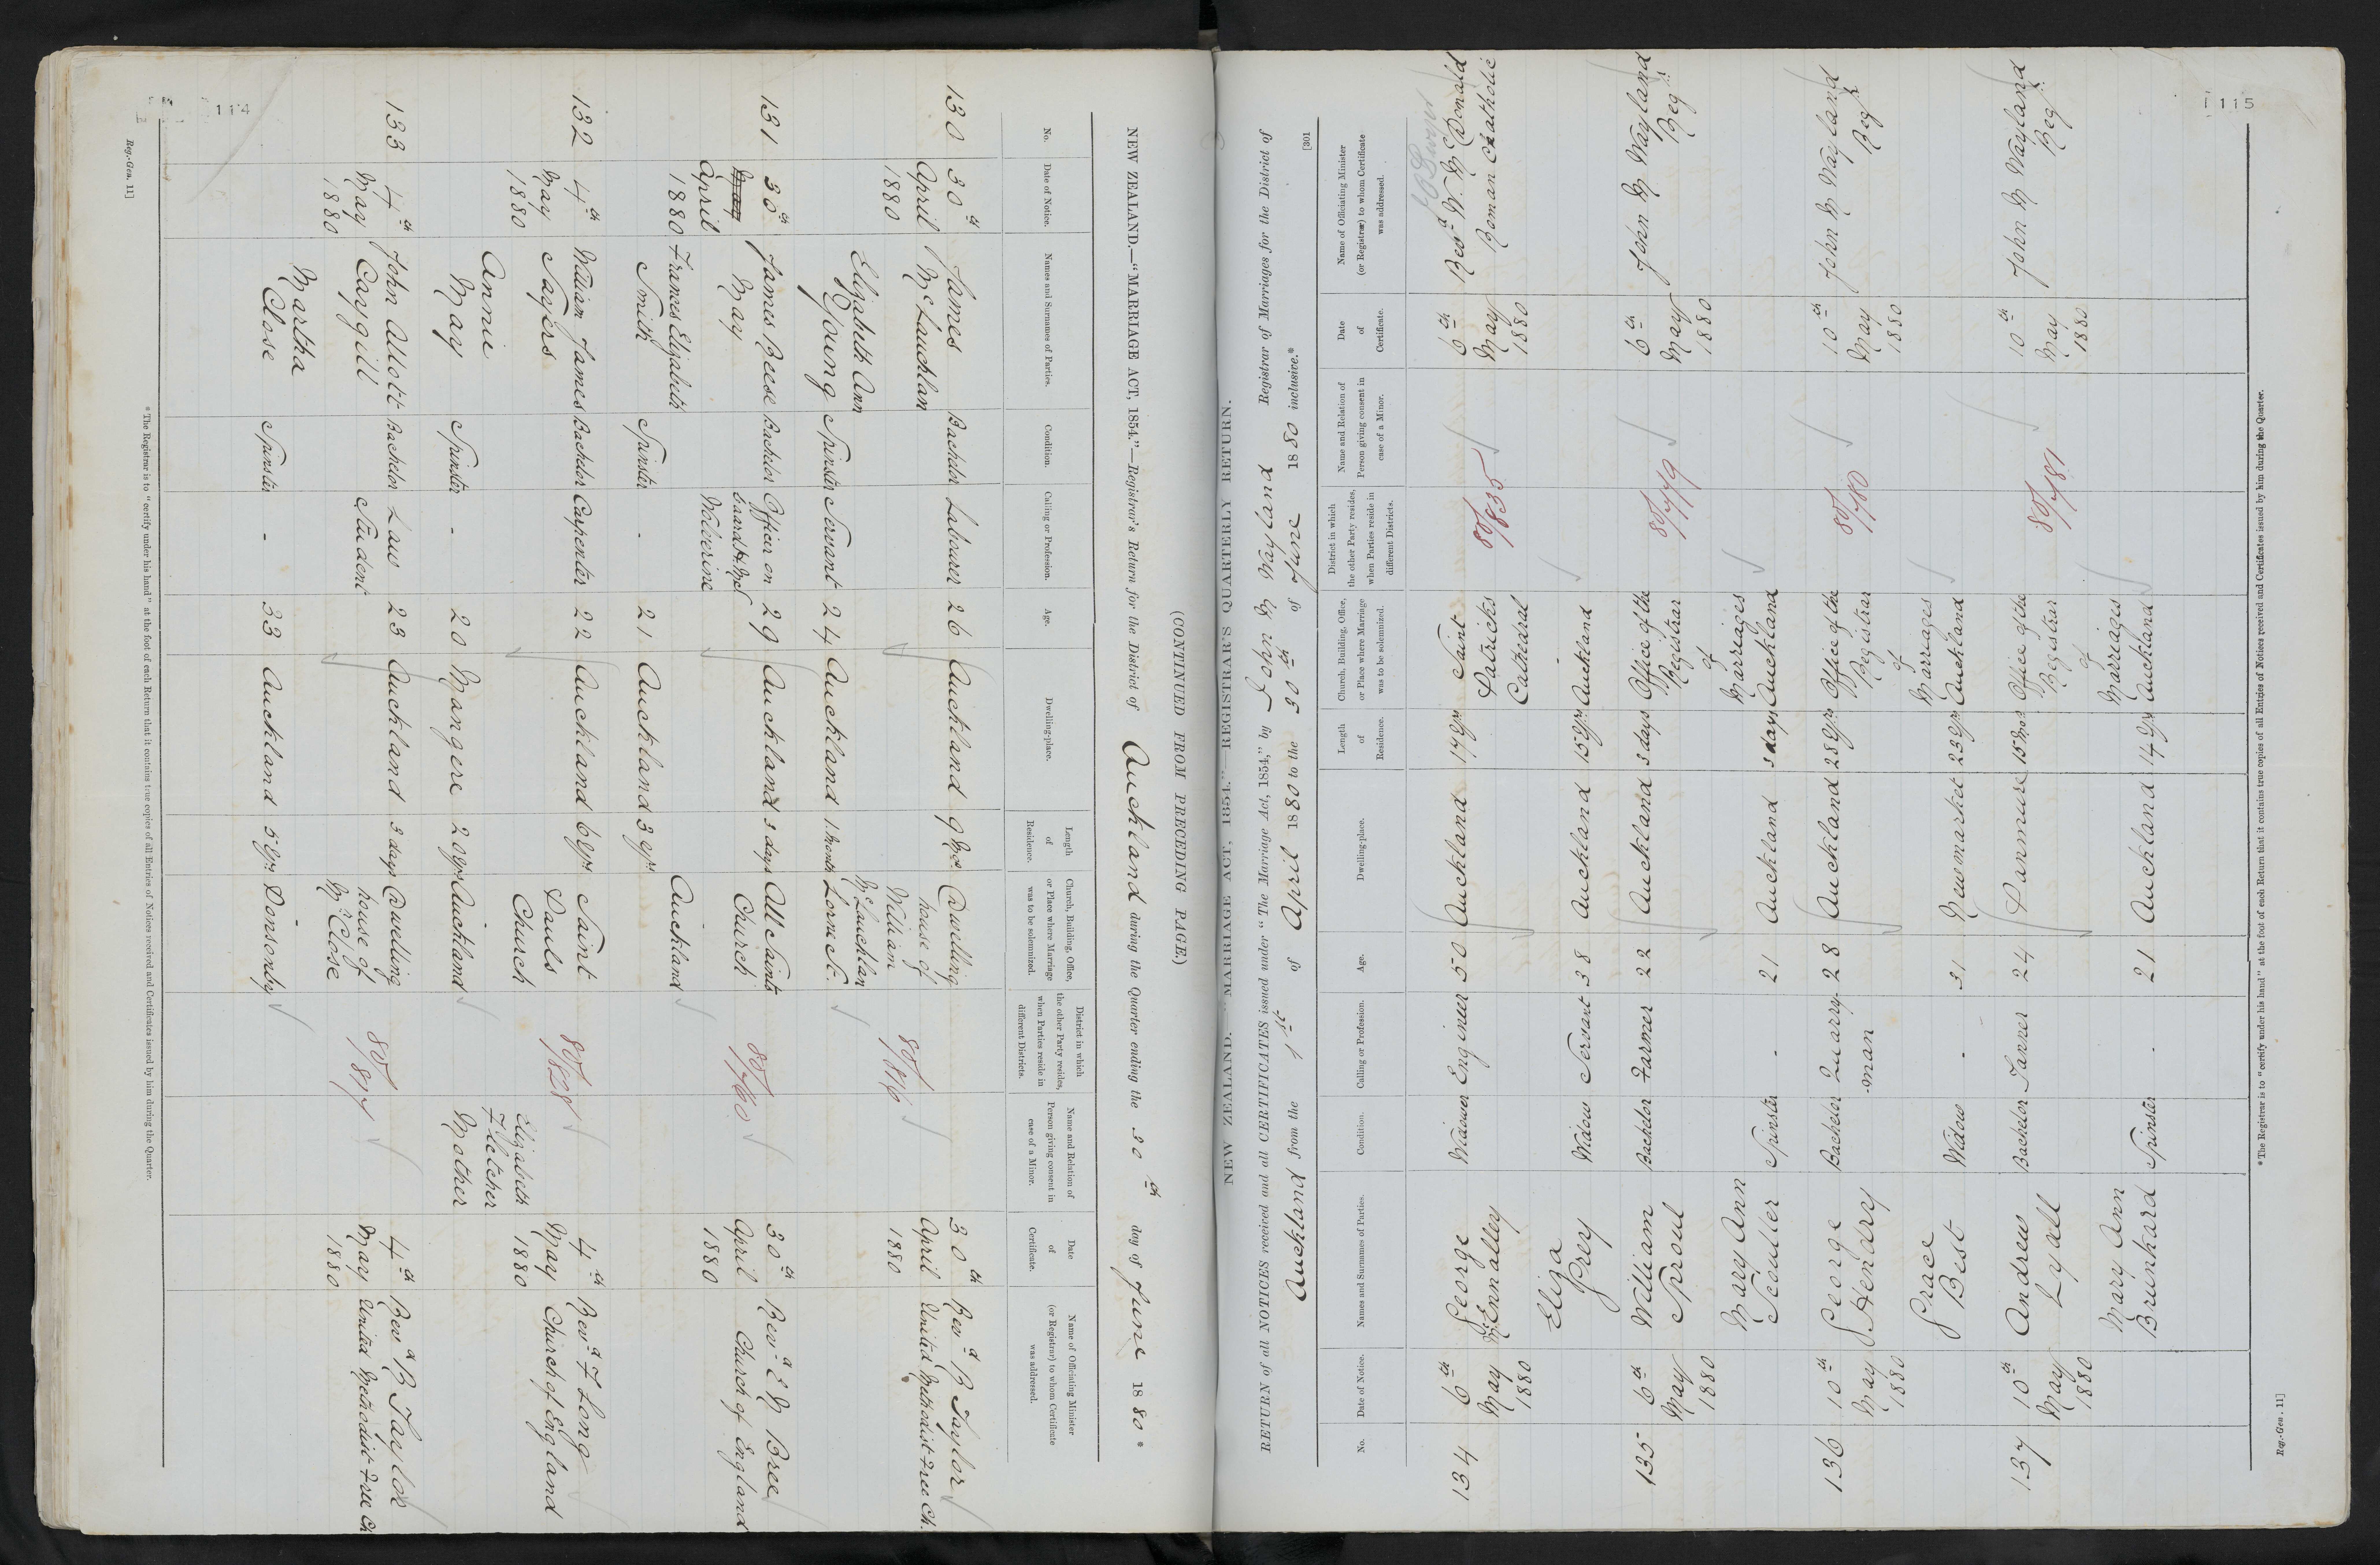 114
(CONTINUED FROM PRECEDING PAGE.)
NEW ZEALAND.—"MARRIAGE ACT, 1854."—Registrar's Return for the District of Auckland during the Quarter ending the 30th day of June 1880 *
No. Date of Notice. Names and Surnames of Parties. Condition. Calling or Profession. Age. Dwelling-place. Length of Residence. Church, Building, Office, or Place where Marriage was to be solemnized. District in which the other Party resides, when Parties reside in different Districts. Name and Relation of Person giving consent in case of a Minor. Date of Certificate. Name of Officiating Minister (or Registrar) to whom Certificate was addressed.
130 30th April 1880 James McLauchlan Bachelor Labourer 26 Auckland 9 Mos Dwelling house of William McLauchlan 80/816 30th April 1880 Revd B Taylor United Methodist Free Ch.
Elizabeth Ann Young Spinster Servant 24 Auckland 1 Month Lorne St.
131 30th May April 1880 James Reese May Bachelor Officer on board H.M.S Wolverine 29 Auckland 3 days All Saints Church 80/760 30th April 1880 Revd E M Bree Church of England
Frances Elizabeth Smith Spinster - 21 Auckland 3 yrs Auckland
132 4th May 1880 William James Sayers Bachelor Carpenter 22 Auckland 6 yrs Saint Pauls Church 80/828 4th May 1880 Revd F Long Church of England
Annie May Spinster - 20 Mangere 20 yrs Auckland Elizabeth Fletcher Mother
133 4th May 1880 John Allott Caygill Bachelor Law Student 23 Auckland 3 days Dwelling house of Mr Close 80/817 4th May 1880 Revd B Taylor United Methodist Free Ch
Martha Close Spinster - 33 Auckland 5 yrs Ponsonby
* The Registrar is to "certify under his hand" at the foot of each Return that it contains true copies of all Entries of Notices received and Certificates issued by him during the Quarter.
Reg.-Gen. 11]
115
NEW ZEALAND. "MARRIAGE ACT, 1854."—REGISTRAR'S QUARTERLY RETURN.
RETURN of all NOTICES received and all CERTIFICATES issued under "The Marriage Act, 1854," by John M Wayland Registrar of Marriages for the District of
Auckland from the 1st of April 1880 to the 30th of June 1880 inclusive.*
[301
No. Date of Notice. Names and Surnames of Parties. Condition. Calling or Profession. Age. Dwelling-place. Length of Residence. Church, Building, Office, or Place where Marriage was to be solemnized. District in which the other Party resides, when Parties reside in different Districts. Name and Relation of Person giving consent in case of a Minor. Date of Certificate. Name of Officiating Minister (or Registrar) to whom Certificate was addressed.
134 6th May 1880 George McEnnalley Widower Engineer 50 Auckland 17 yrs Saint Patricks Cathedral 80/835 6th May 1880 Revd W. McDonald Roman Catholic
Eliza Prey Widow Servant 38 Auckland 15 yrs Auckland
135 6th May 1880 William Sproul Bachelor Farmer 22 Auckland 3 days Office of the Registrar of Marriages 80/779 6th May 1880 John M Wayland Regr
Mary Ann Scouller Spinster - 21 Auckland 3 days Auckland
136 10th May 1880 George Hendry Bachelor Quarry-man 28 Auckland 28 yrs Office of the Registrar of Marriages 80/780 10th May 1880 John M Wayland Regr
Grace Best Widow - 31 Newmarket 23 yrs Auckland
137 10th May 1880 Andrew Lyall Bachelor Tanner 24 Panmure 15 Mos Office of the Registrar of Marriages 80/781 10th May 1880 John M Wayland Regr
Mary Ann Brunkard Spinster - 21 Auckland 14 yrs Auckland
* The Registrar is to "certify under his hand" at the foot of each Return that it contains true copies of all Entries of Notices received and Certificates issued by him during the Quarter.
Reg.-Gen. 11]